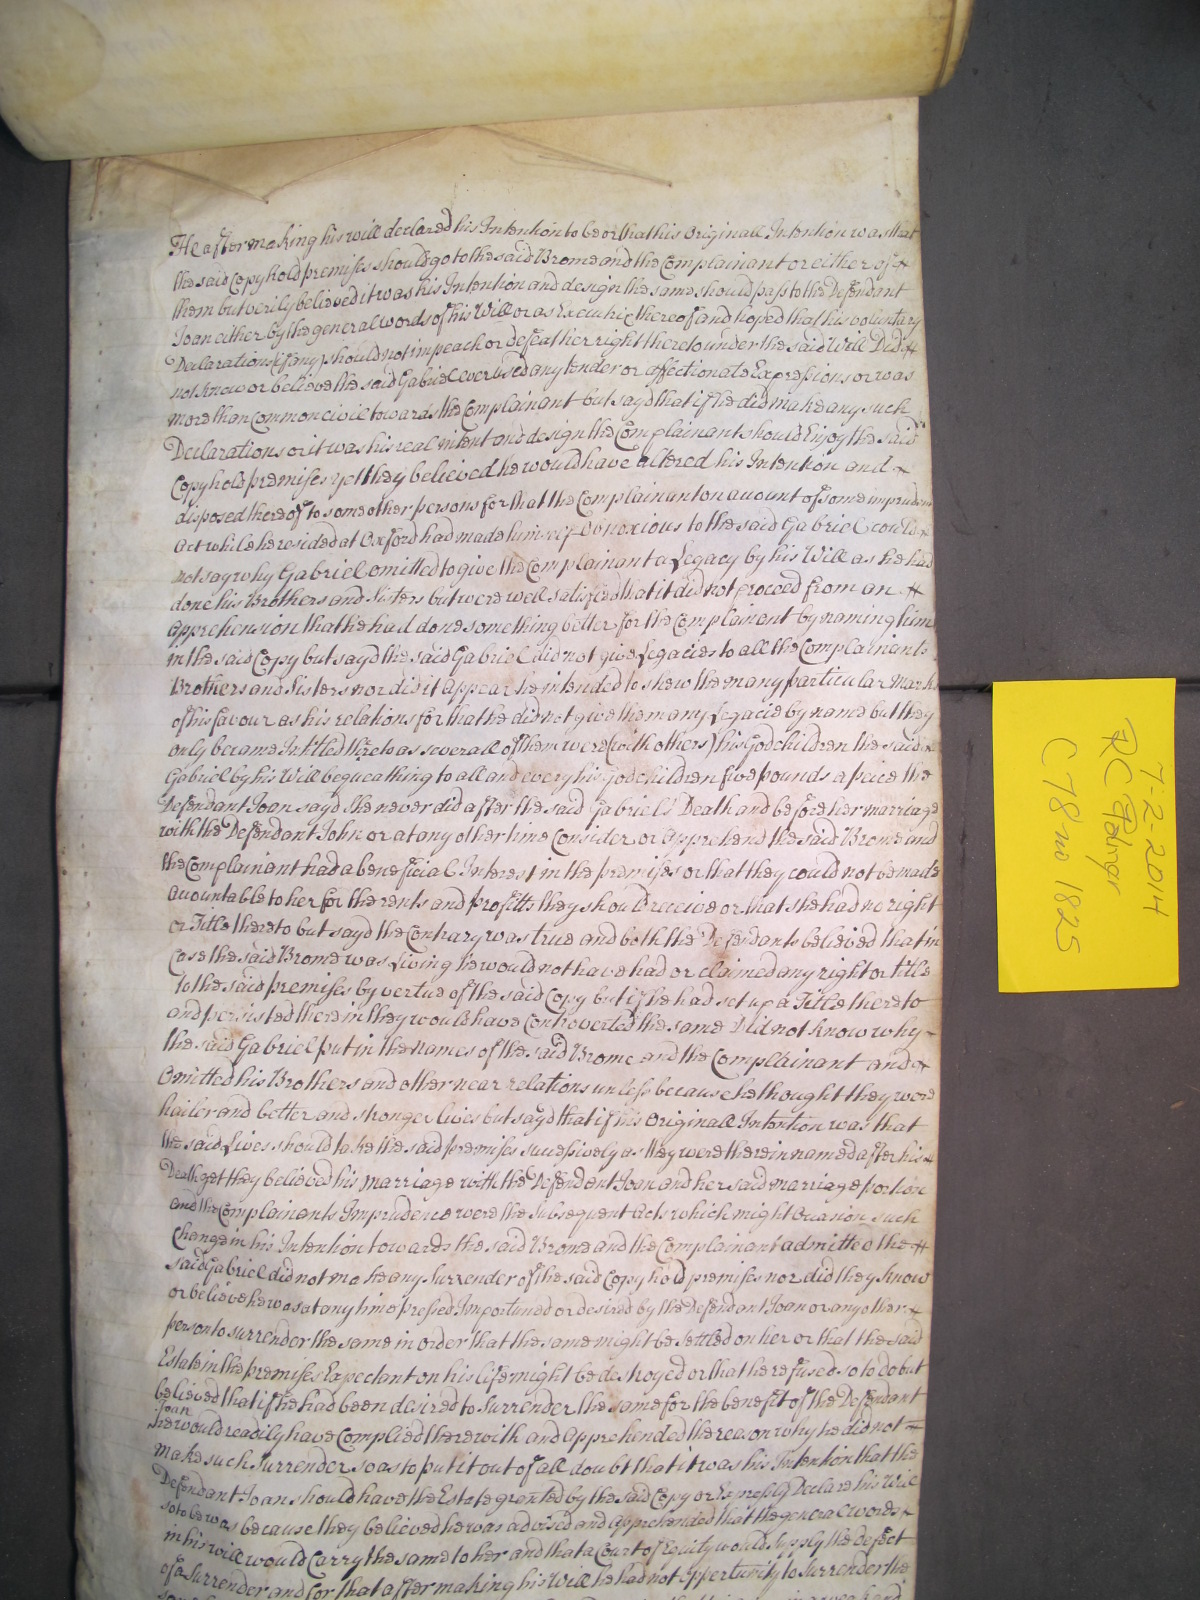 He after making his will declared his Intention to be or that his Originall Intention was that
the said Copyhold premises should go to the said Brome and the Complainant or either of
them but verily believed it was his Intention and design the same should pass to the Defendant
Joan either by the general words of his Will or as Executrix thereof and hoped that his voluntary
Declarations (if any) should not impeach or defeat her right thereto under the said Will Did
not know or believe the said Gabriel ever used any tender or affectionate Expressions or was
more than Common civil towards the Complainant but sayd that if he did make any such
Declarations or it was his real intent and design the Complainant should Enjoy the said
Copyhold premises yet they believed he would have altered his Intention and
disposed thereof to some other persons for that the Complainant on account of some imprudent
Act while he resided at Oxford had made himself Obnoxious to the said Gabriel could
not say why Gabriel omitted to give the Complainant a Legacy by his Will as he had
done his Brothers and Sisters but were well satisfied that it did not proceed from an
apprehension that he had done something better for the Complainant by naming him
in the said Copy but sayd the said Gabriel did not give Legacies to all the Complainants
Brothers and Sisters nor did it appear he intended to shew them any particular Marks
of his favour as his relations for that he did not give them any Legacie by name but they
only became Intitled thereto as severall of them were (with others) his Godchildren the said
Gabriel by his Will bequeathing to all and every his Godchildren five pounds a peice the
Defendant Joan sayd she never did after the said Gabriel's Death and before her marriage
with the Defendant John or at any other time Consider or Apprehend the said Brome and
the Complainant had a beneficial Interest in the premises or that they could not be made
accountable to her for the rents and profitts they should receive or that she had no right
or Title thereto but sayd the Contrary was true and both the Defendants believed that in
Case the said Brome was Living he would not have had or claimed any right or title
to the said premises by vertue of the said Copy but if he had set up a Title thereto
and persisted therein they would have Controverted the same Did not know why
the said Gabriel put in the names of the said Brome and the Complainant and
Omitted his Brothers and other near relations unless because he thought they were
hailer and better and stronger lives but sayd that if his Originall Intention was that
the said Lives should take the said premises successively as they were therein named after his
Death yet they believed his marriage with the Defendant Joan and her said marriage portion
and the Complainants Imprudence were the Subsequent Acts which might Occasion such
Change in his Intention towards the said Brome and the Complainant admitted the
said Gabriel did not make any Surrender of the said Copyhold premises nor did they know
or believe he was at any time pressed Importuned or desired by the Defendant Joan or any other
person to surrender the same in order that the same might be settled on her or that the said
Estate in the premises Expectant on his life might be destroyed or that he refused so to do but
believed that if he had been desired to Surrender the same for the benefit of the Defendant
Joan
he would readily have Complied therewith and Apprehended the reason why he did not
make such Surrender so as to put it out of all doubt that it was his Intention that the
Defendant Joan should have the Estate granted by the said Copy or Expressly Declare his Will
so to be was because they believed he was advised and apprehended that the general words
in his will would Carry the same to her and that a Court of Equity would supply the defect
of a Surrender and for that after making his Will he had not Oppertunity to Surrender the
7-2-2014
RC Palmer
C78 no 1825